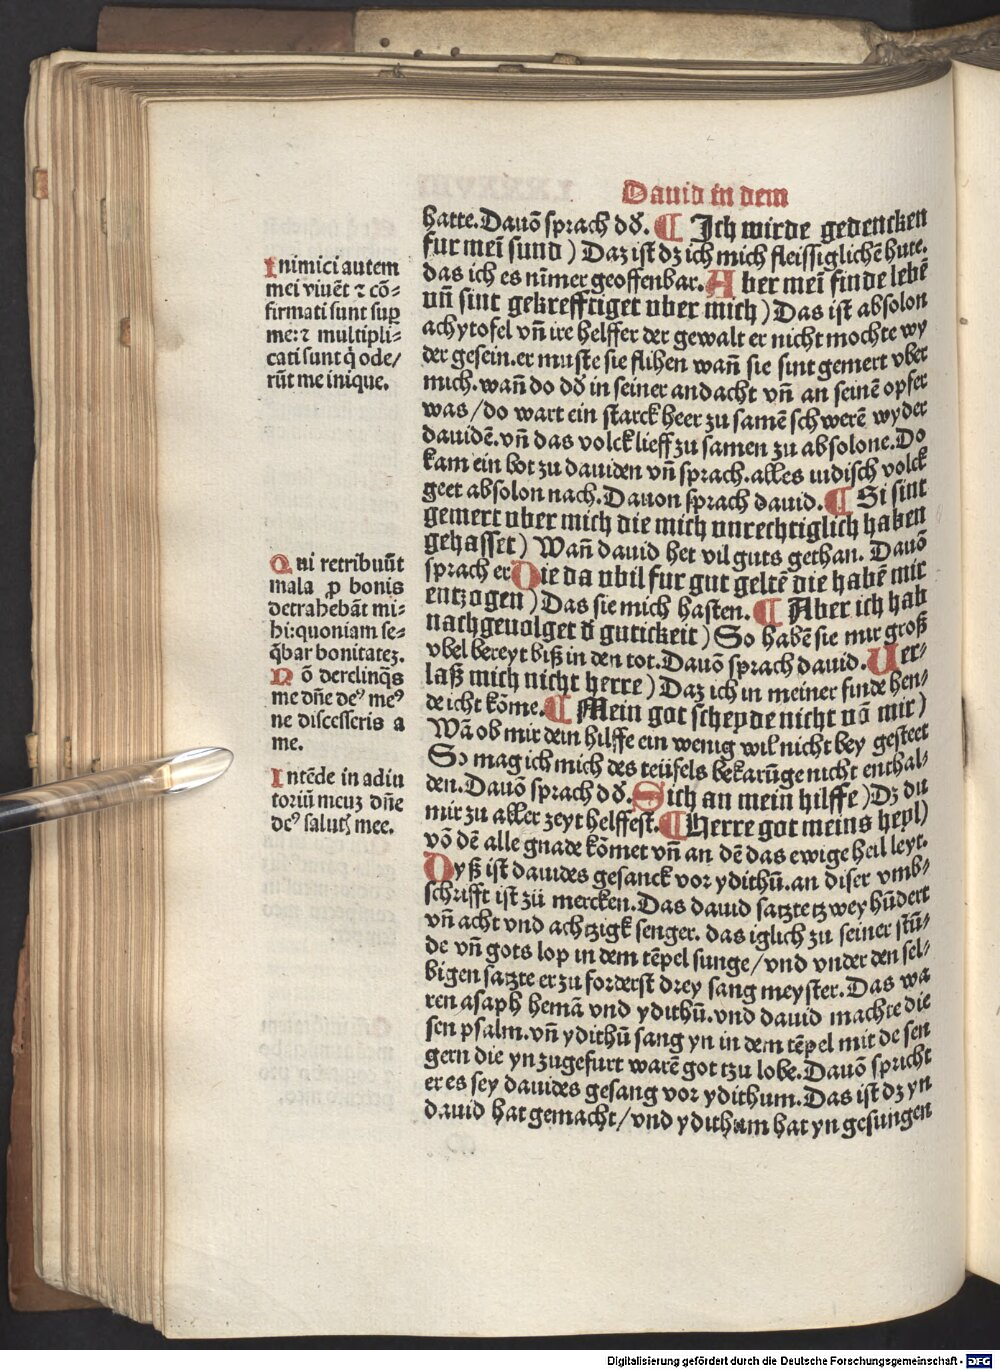 Dauid in dem
hatte. Dauō sprach dð. ¶ Ich wirde gedencken
fur mei sund) Daz ist dz ich mich fleissiglichē hute.
das ich es nīmer geoffenbar. Aber mei finde lebē
vñ sint gekrefftiget vber mich) Das ist absolon
achytofel vñ ire helffer der gewalt er nicht mochte wy
der gesein. er muste sie flihen wañ sie sint gemert vber
mich. wañ do dð in seiner andacht vñ an seinē opfer
was/do wart ein starck heer zu samē schwerē wyder
dauidē. vñ das volck lieff zu samen zu absolone. Do
kam ein bot zu dauiden vñ sprach. alles iudisch volck
geet absolon nach. Dauon sprach dauid. ¶ Si sint
gemert vber mich die mich vnrechtiglich haben
gehasset) Wañ dauid het vil guts gethan. Dauō
sprach er Die da vbil fur gut geltē die habē mir
entzogen) Das sie mich hasten. ¶ Aber ich hab
nachgeuolget ð gutickeit) So habē sie mir groß
vbel bereyt biß in den tot. Dauō sprach dauid. Uer-
laß mich nicht herre) Daz ich in meiner finde hen-
de icht kōme. ¶ Mein got scheyde nicht vō mir)
Wā ob mir dein hilffe ein wenig wil nicht bey gesteet
So mag ich mich des teüfels bekarūge nicht enthal-
den. Dauō sprach dð. Sich an mein hilffe) Dz du
mir zu aller zeyt helffest. ¶ Herre got meins heyl)
vō dē alle gnade kōmet vñ an dē das ewige heil leyt.
Dyß ist dauides gesanck vor ydithū. an diser vmb-
schrifft ist zü mercken. Das dauid satzte tzwey hūdert
vñ acht vnd achtzigk senger. das iglich zu seiner stū-
de vñ gots lop in dem tēpel sunge/vnd vnder den sel-
bigen satzte er zu forderst drey sang meyster. Das wa
ren asaph hemā vnd ydithū. vnd dauid machte die
sen psalm. vñ ydithū sang yn in dem tēpel mit de sen
gern die yn zugefurt warē got tzu lobe. Dauō spricht
er es sey dauides gesang vor ydithum. Das ist dz yn
dauid hat gemacht/vnd ydithum hat yn gesungen
Inimici autem
mei viuēt ⁊ cō-
firmati sunt sup̱
me:⁊ multipli-
cati sunt q̇ ode/
rūt me inique.
Qui retribuūt
mala ꝓ bonis
detrahebāt mi-
hi:quoniam se-
q̄bar bonitateȝ.
Nō derelinq̄s
me dn̄e deꝰ meꝰ
ne discesseris a
me.
Intēde in adiu
toriū meuȝ dn̄e
deꝰ salutꝭ mee.
Digitalisierung gefördert durch die Deutsche Forschungsgemeinschaft - DFG